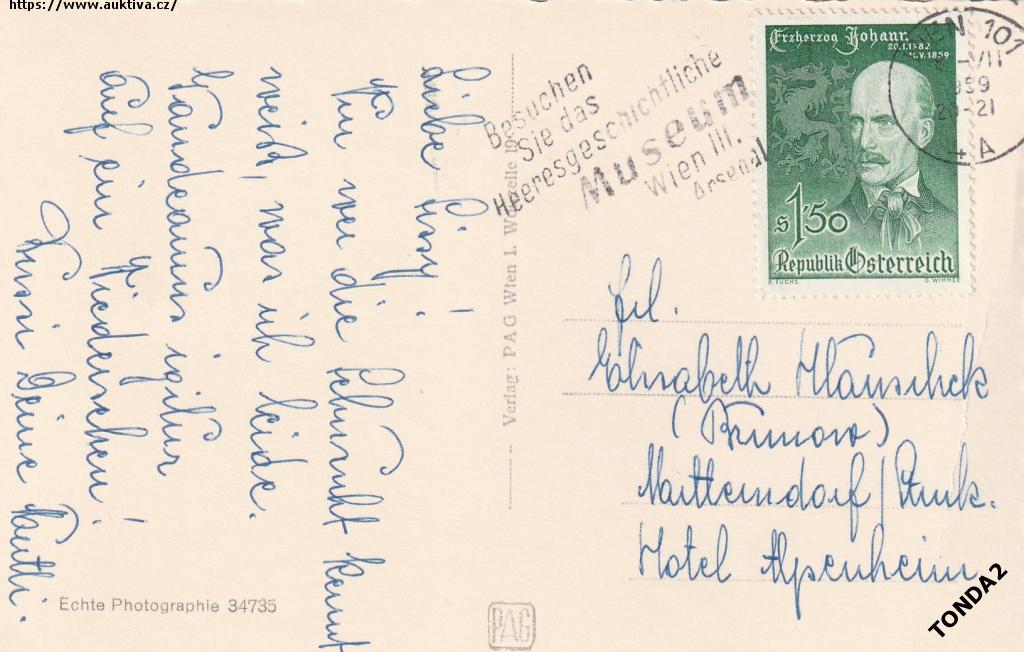 https://www.auktiva.cz/
Liebe Lissy!
Nur wer die Sehnsucht kennt
weiß, was ich leide.
Gaudeamus igitur
Auf ein Wiedersehen!
Bussi Deine
Besuchen
Sie das
Heeresgeschichtliche
Museum
Wien III.
Arsenal
Erzherzog Johann
20.I.1782
11.V.1859
s 1'50
Republik Österreich
R. FUCHS
G. WIMMER
WIEN 101
1959
-21
4 A
Verlag: PAG Wien I. Wollzeile
Frl.
Elisabeth
Hotel Alpenheim
Echte Photographie 34735
PAG
TONDA2